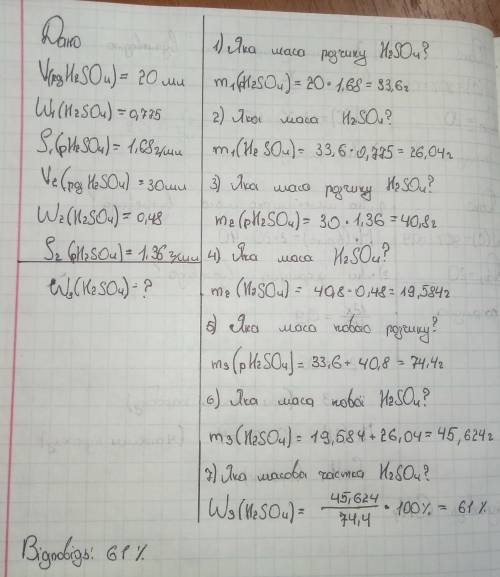 Дано
V(рз H2SO4) = 20 мл
W1(H2SO4) = 0,775
ρ1(рH2SO4) = 1,68 г/мл
V2(роз H2SO4) = 30 мл
W2(H2SO4) = 0,48
ρ2(рH2SO4) = 1,36 г/мл
W3(H2SO4) - ?
1) Яка маса розчину H2SO4?
m1(H2SO4) = 20 · 1,68 = 33,6 г
2) Яка маса H2SO4?
m1(H2SO4) = 33,6 · 0,775 = 26,04 г
3) Яка маса розчину H2SO4?
m2(рH2SO4) = 30 · 1,36 = 40,8 г
4) Яка маса H2SO4?
m2(H2SO4) = 40,8 · 0,48 = 19,584 г
5) Яка маса нового розчину?
m3(рH2SO4) = 33,6 + 40,8 = 74,4 г
6) Яка маса нової H2SO4?
m3(H2SO4) = 19,584 + 26,04 = 45,624 г
7) Яка масова частка H2SO4?
W3(H2SO4) = 45,624 / 74,4 · 100% = 61 %
Відповідь: 61 %